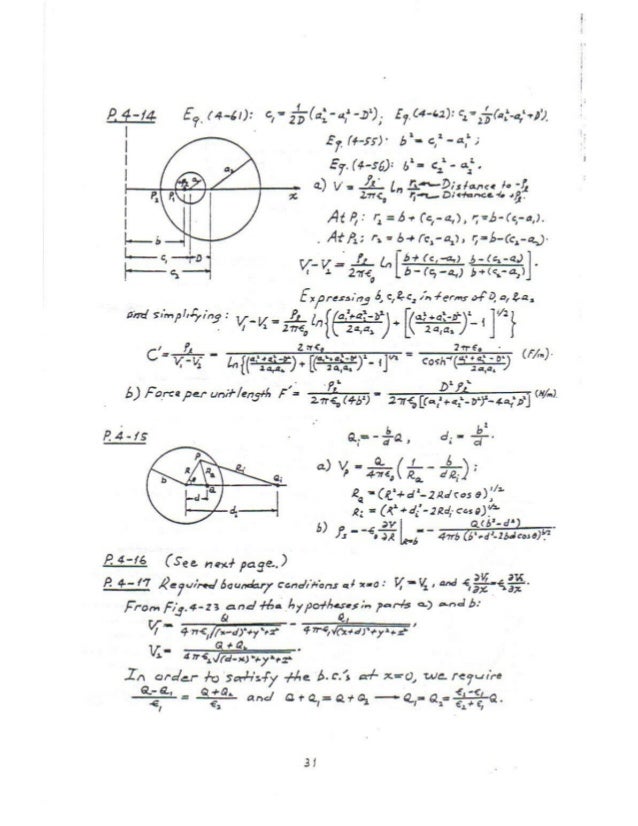 P.4-14 Eq. (4-61): c₁ = 1/2D (a₂² - a₁² - D²); Eq. (4-62): c₂ = 1/2D (a₂² - a₁² + D²).
Eq. (4-55): b² = c₁² - a₁² ;
Eq. (4-56): b² = c₂² - a₂² .
a₂
a₁
P₂ P₁ x
b
c₁ D
c₂
a) V = ρ_ℓ/2πε₀ ln r₂/r₁ Distance to -ρ_ℓ Distance to +ρ_ℓ.
At P₁: r₂ = b + (c₁-a₁), r₁ = b-(c₁-a₁).
At P₂: r₂ = b + (c₂-a₂), r₁ = b-(c₂-a₂).
V₁-V₂ = ρ_ℓ/2πε₀ ln [ b+(c₁-a₁)/b-(c₁-a₁) · b-(c₂-a₂)/b+(c₂-a₂) ].
Expressing b, c₁ & c₂ in terms of D, a₁ & a₂
and simplifying: V₁-V₂ = ρ_ℓ/2πε₀ ln{ (a₁²+a₂²-D²/2a₁a₂) + [(a₁²+a₂²-D²/2a₁a₂)² - 1]^1/2 }
C' = ρ_ℓ/V₁-V₂ = 2πε₀/ln{(a₁²+a₂²-D²/2a₁a₂) + [(a₁²+a₂²-D²/2a₁a₂)² - 1]^1/2} = 2πε₀/cosh⁻¹(a₁²+a₂²-D²/2a₁a₂) (F/m).
b) Force per unit length F' = ρ_ℓ²/2πε₀(4b²) = D²ρ_ℓ²/2πε₀[(a₁²+a₂²-D²)²-4a₁²a₂²] (N/m).
P.4-15 Q_i = - b/d Q, d_i = b²/d .
P
R R_Q R_i
b θ Q Q_i
d
d_i
a) V_P = Q/4πε₀ ( 1/R_Q - b/dR_i ) ;
R_Q = (R²+d²-2Rd cos θ)^1/2,
R_i = (R²+d_i²-2Rd_i cos θ)^1/2.
b) ρ_s = -ε₀ ∂V/∂R |_R=b = - Q(b²-d²)/4πb(b²+d²-2bd cos θ)^3/2
P.4-16 (See next page.)
P.4-17 Required boundary conditions at x=0: V₁ = V₂, and ε₁ ∂V₁/∂x = ε₂ ∂V₂/∂x.
From Fig. 4-23 and the hypotheses in parts a) and b:
V₁ = Q/4πε₁√(x-d)²+y²+z² - Q₁/4πε₁√(x+d)²+y²+z² ,
V₂ = Q+Q₂/4πε₂√(d-x)²+y²+z² .
In order to satisfy the b.c.'s at x=0, we require
Q-Q₁/ε₁ = Q+Q₂/ε₂ and Q+Q₁ = Q+Q₂ → Q₁ = Q₂ = ε₂-ε₁/ε₂+ε₁ Q.
31